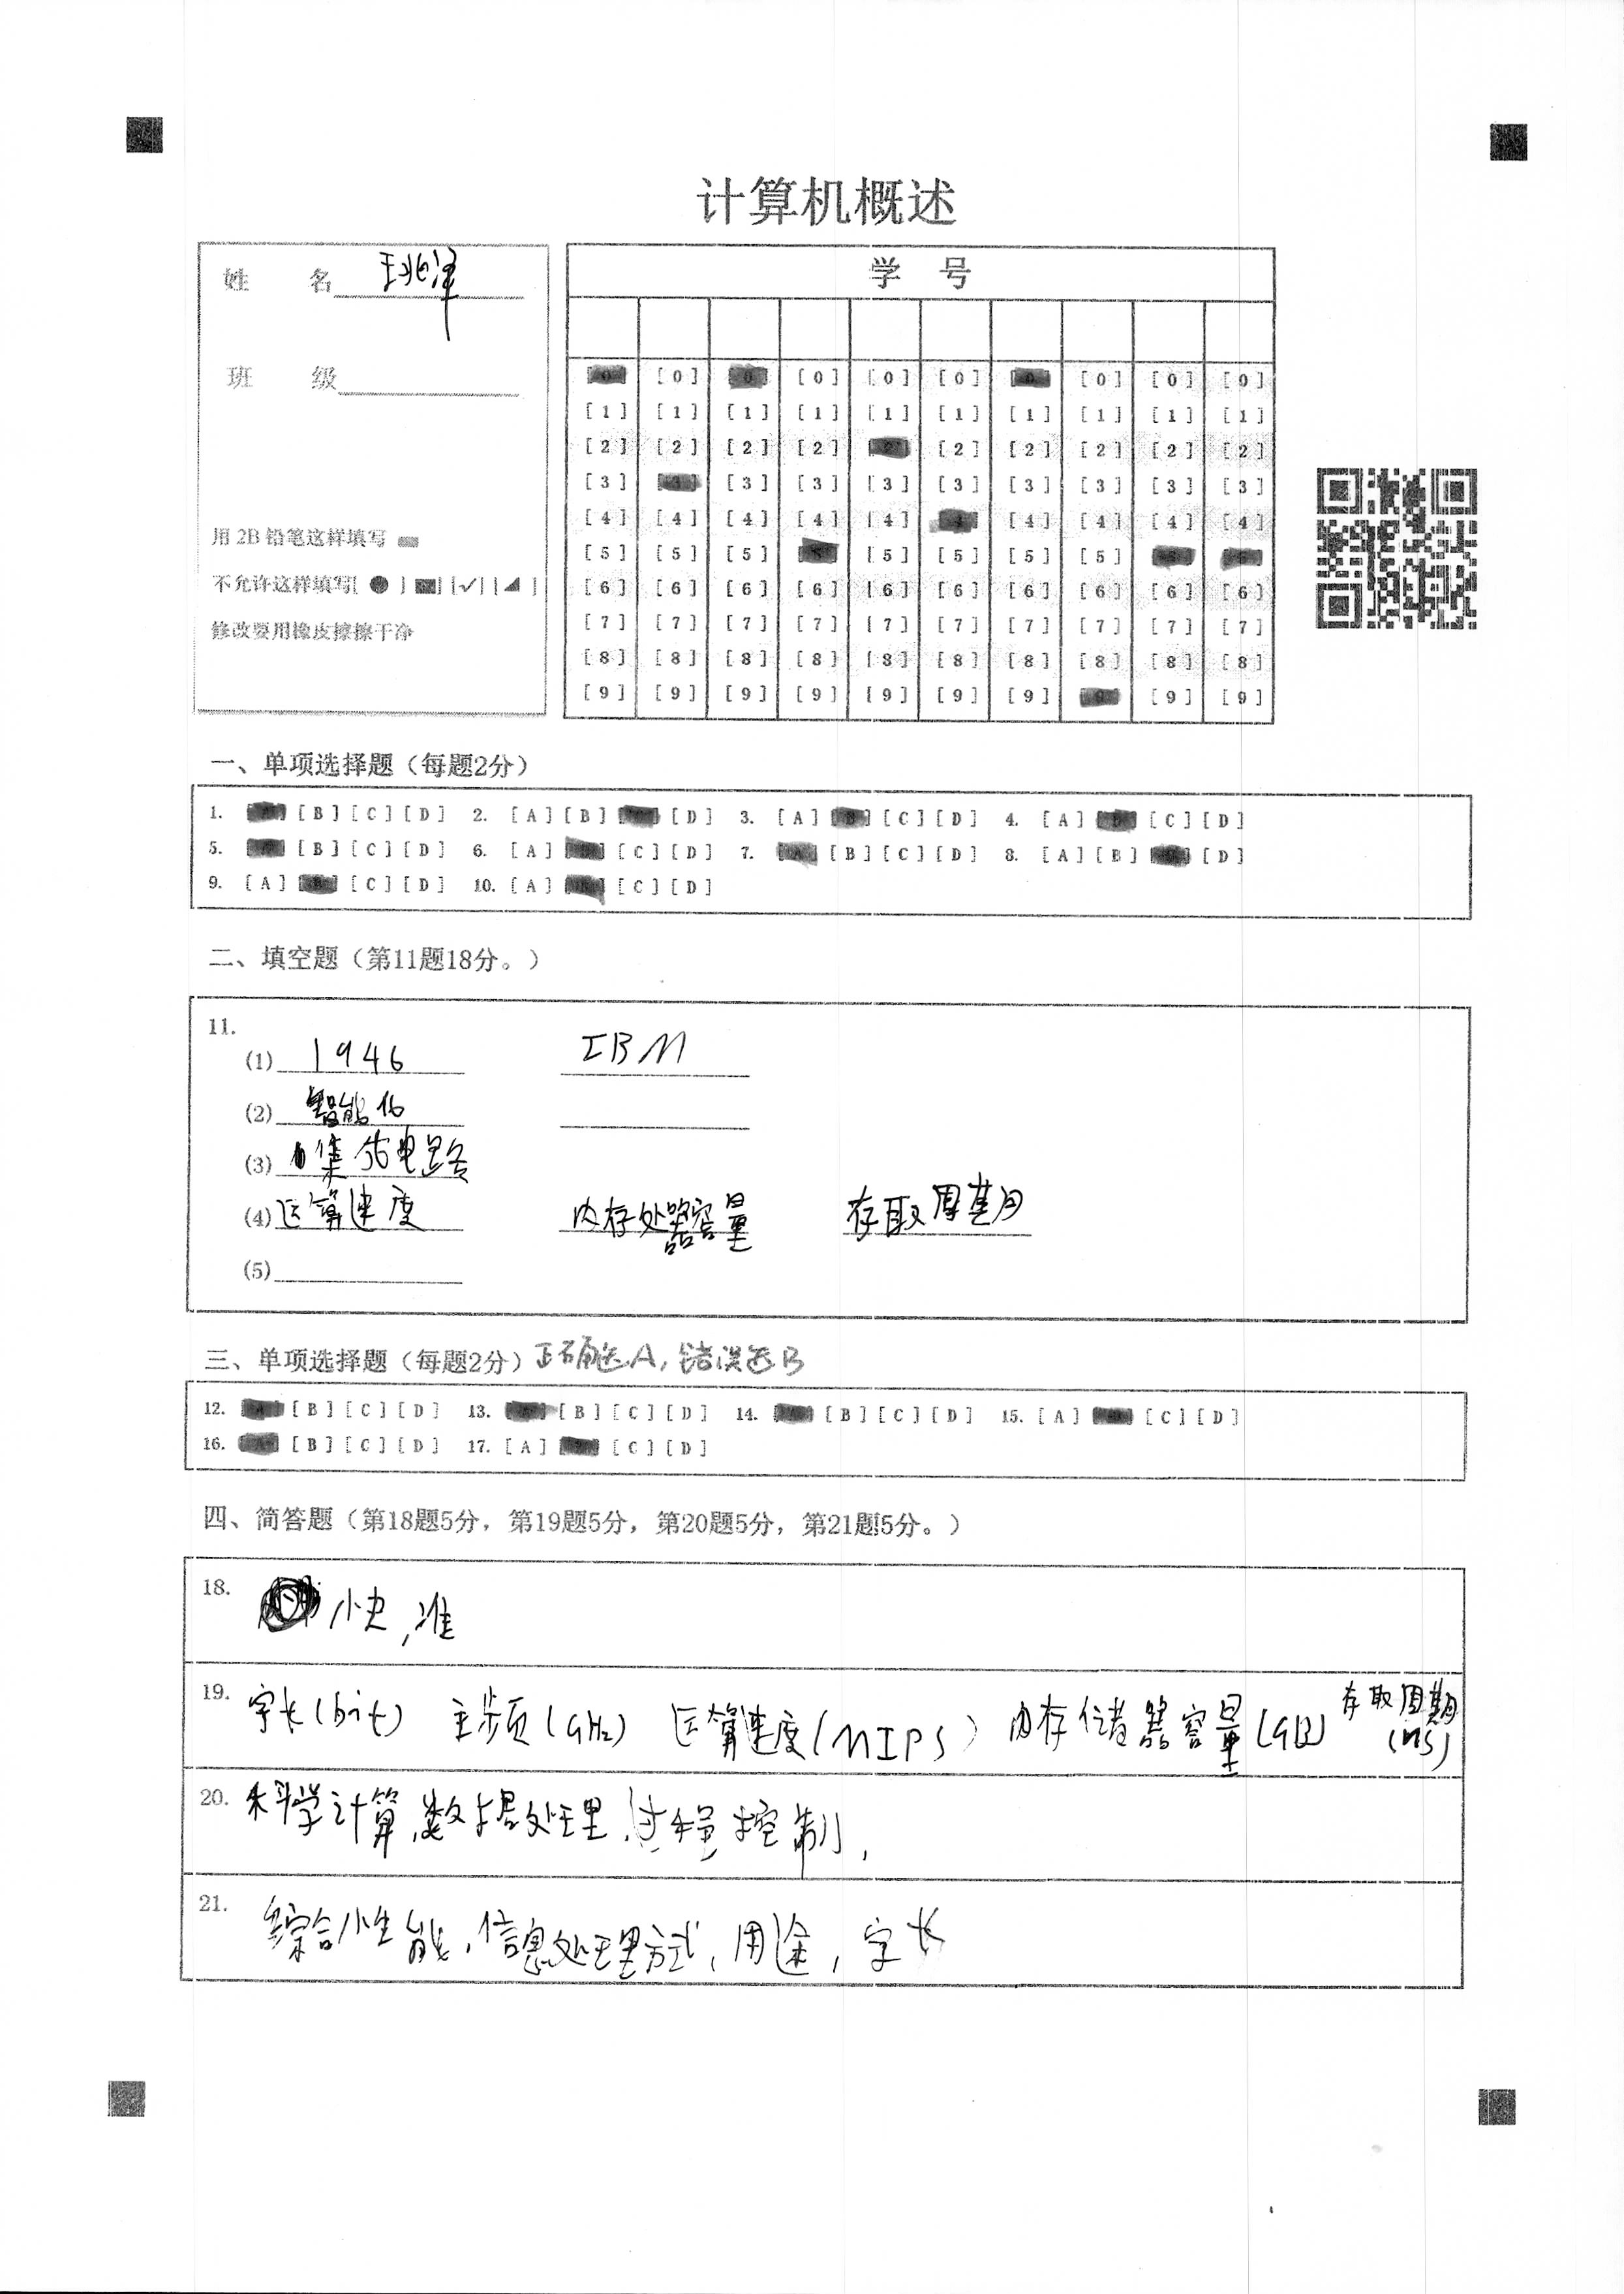 计算机概述
姓 名
班 级
用 2B 铅笔这样填写
不允许这样填写[ ● ] [ ] [✓] [◢ ]
修改要用橡皮擦擦干净
学 号
[0] [0] [0] [0] [0] [0] [0] [0] [0] [0]
[1] [1] [1] [1] [1] [1] [1] [1] [1] [1]
[2] [2] [2] [2] [2] [2] [2] [2] [2] [2]
[3] [3] [3] [3] [3] [3] [3] [3] [3] [3]
[4] [4] [4] [4] [4] [4] [4] [4] [4] [4]
[5] [5] [5] [5] [5] [5] [5] [5] [5] [5]
[6] [6] [6] [6] [6] [6] [6] [6] [6] [6]
[7] [7] [7] [7] [7] [7] [7] [7] [7] [7]
[8] [8] [8] [8] [8] [8] [8] [8] [8] [8]
[9] [9] [9] [9] [9] [9] [9] [9] [9] [9]
一、单项选择题（每题2分）
1. [A] [B] [C] [D] 2. [A] [B] [C] [D] 3. [A] [B] [C] [D] 4. [A] [B] [C] [D]
5. [A] [B] [C] [D] 6. [A] [B] [C] [D] 7. [A] [B] [C] [D] 8. [A] [B] [C] [D]
9. [A] [B] [C] [D] 10. [A] [B] [C] [D]
二、填空题（第11题18分。）
11.
(1) 1946 IBM
(2) 智能化
(3) 集成电路
(4) 运算速度 内存处器容量 存取周期
(5)
三、单项选择题（每题2分）正确选A，错误选B
12. [A] [B] [C] [D] 13. [A] [B] [C] [D] 14. [A] [B] [C] [D] 15. [A] [B] [C] [D]
16. [A] [B] [C] [D] 17. [A] [B] [C] [D]
四、简答题（第18题5分，第19题5分，第20题5分，第21题5分。）
18. 快，准
19. 字长(bit) 主频(GHz) 运算速度(MIPS) 内存储器容量(GB) 存取周期(ns)
20. 科学计算，数据处理，过程控制，
21. 综合性能，信息处理方式，用途，字长